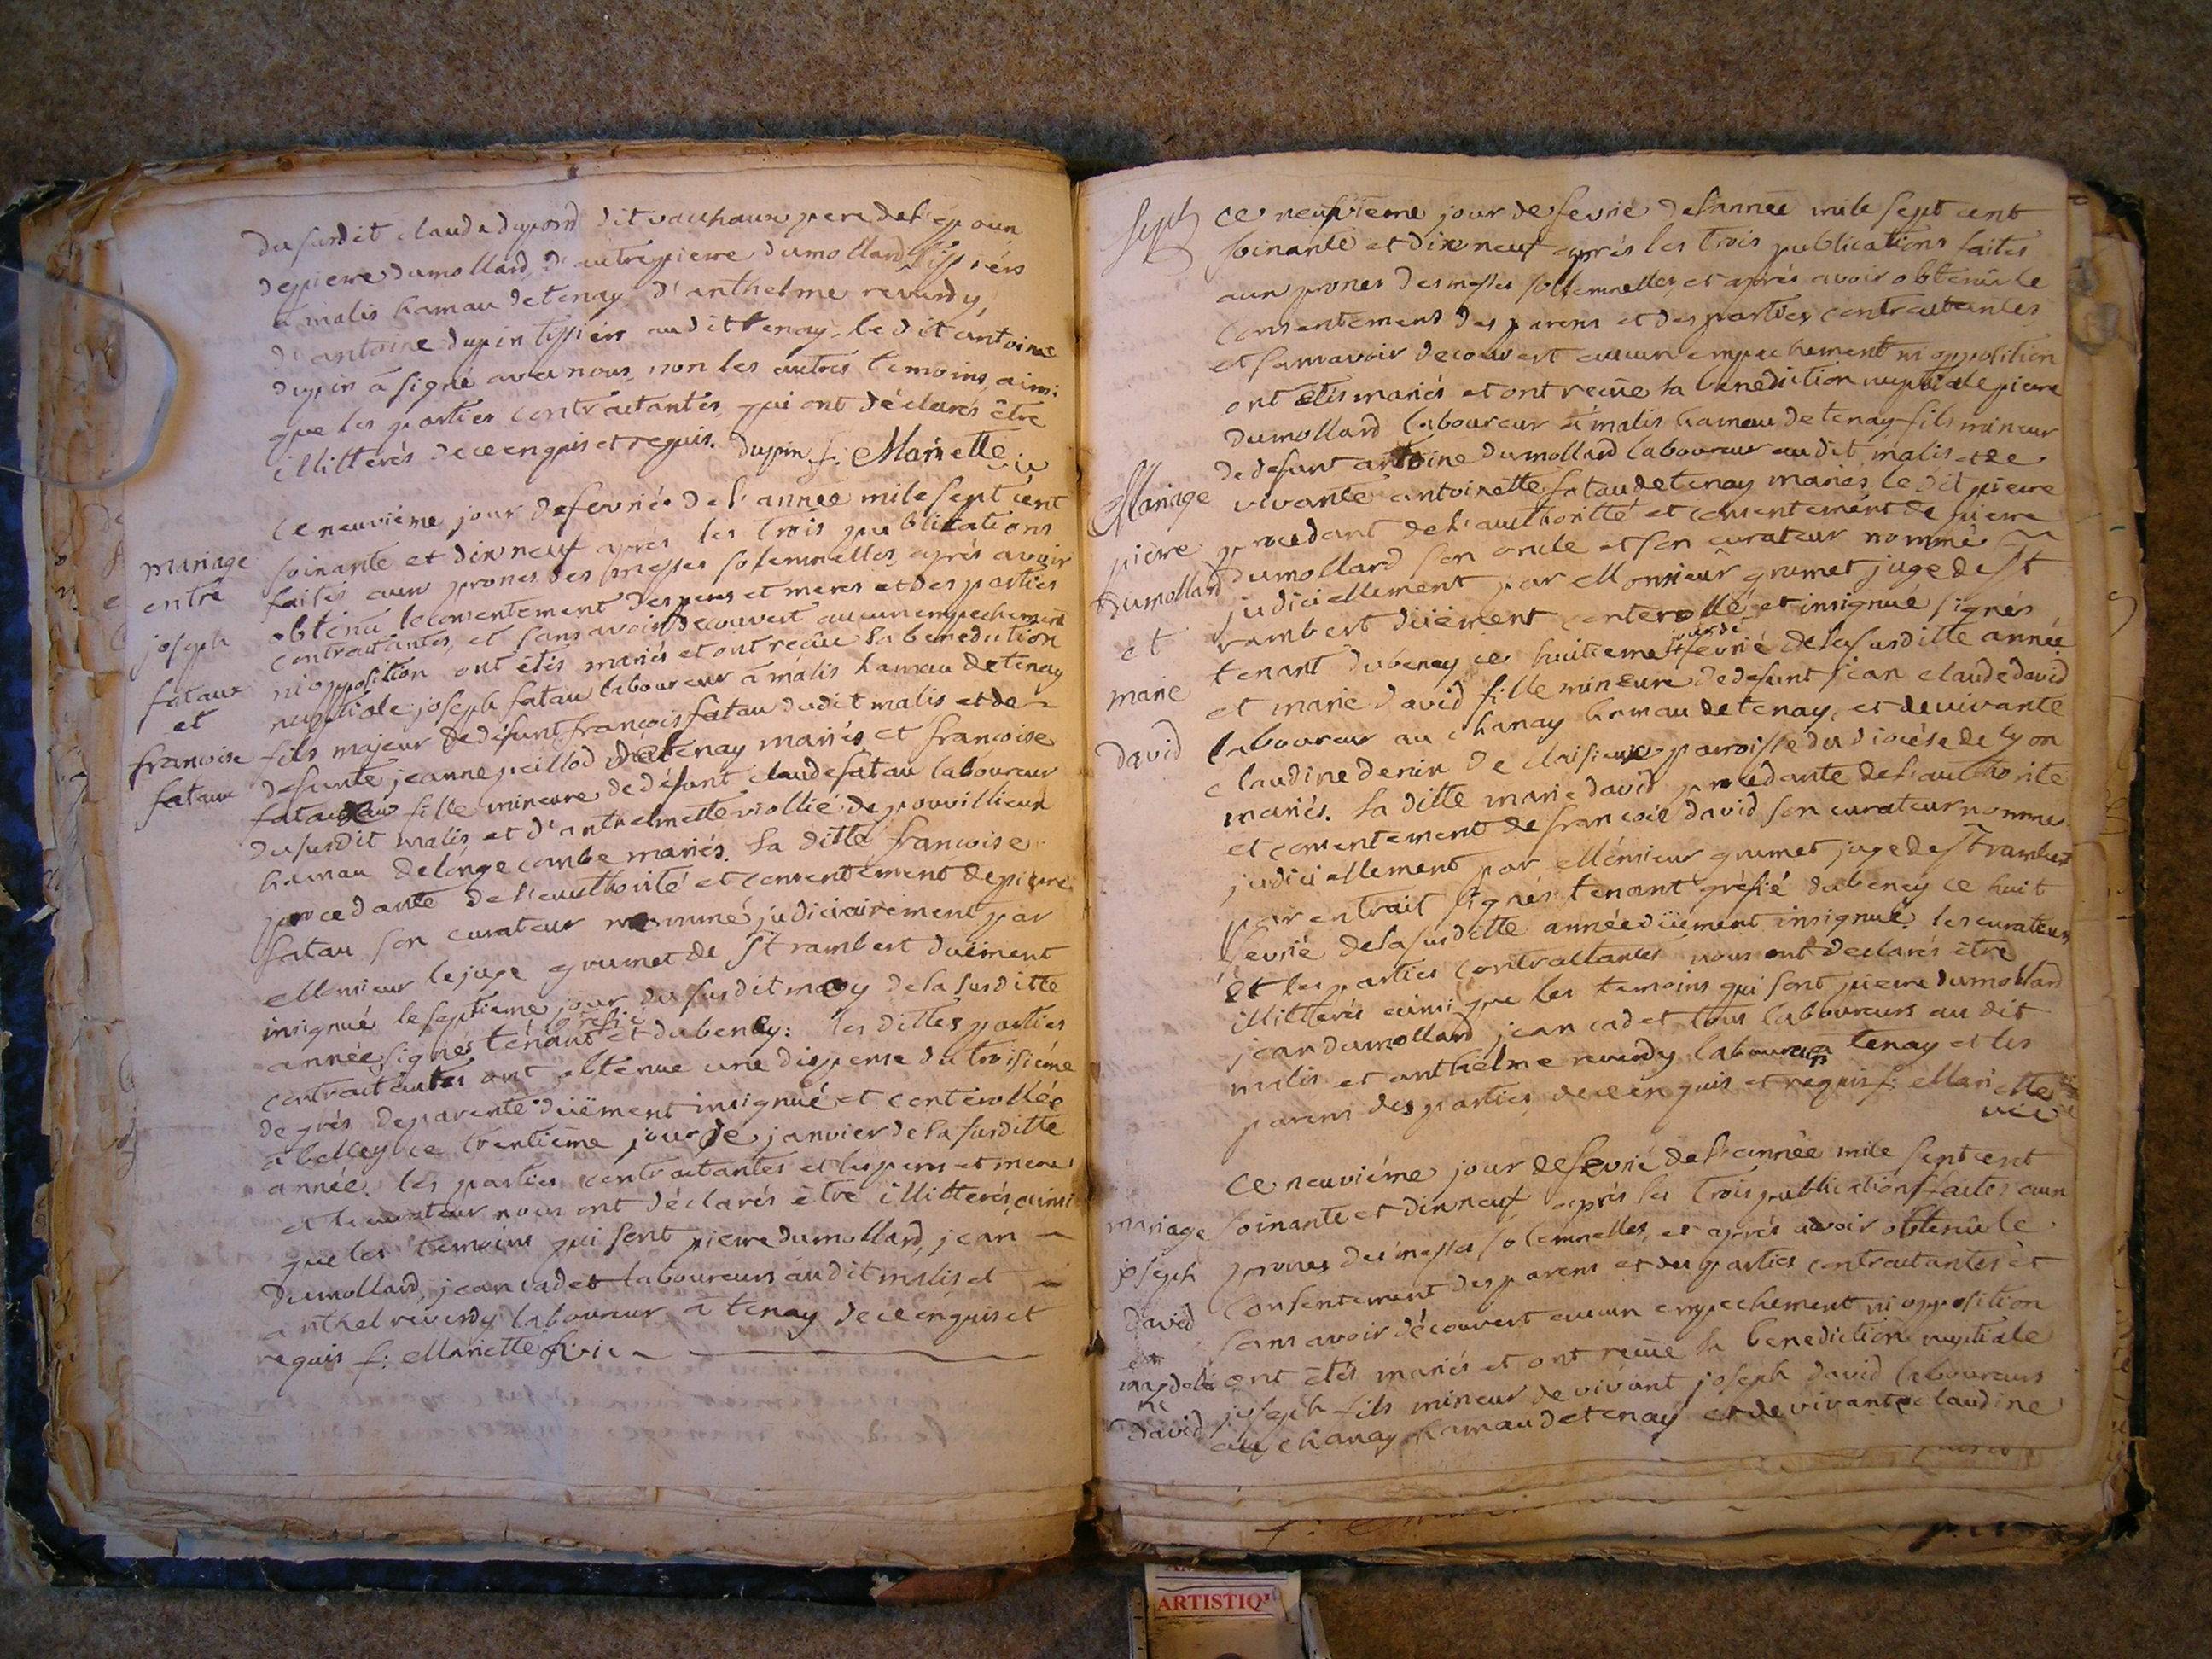 du susdit claude dupond dit vauchaux pere de l'epoux
de pierre dumollard, d'autre pierre dumollard tissiérs
à malis hamau de tenay d'anthelme revirdy,
d'antoine dupin tissier audit tenay. le dit antoine
dupin à signé avec nous, non les autres temoins, ainsi
que les parties contractantes qui ont déclarés être
illitterés de ce enquis et requis. Dupin f: Mariette vic
mariage
entre
joseph
fataux
et
francoise
fataux
Ce neuviéme jour de fevrié de l'année mile sept cent
soixante et dix neuf après les trois publications
faites aux prones des messes solemnelles, après avoir
obtenu le consentement des peres et meres et des parties
contractantes, et sans avoir découvert aucun empechement
ni opposition ont étés mariés et ont recûe la benediction
nuptiale joseph fatau laboureur à malis hamau de tenay
fils majeur de défunt françois fatau dudit malis et de
defunte jeanne peillod de tenay mariés et francoise
fatau fille mineure de défunt claude fatau laboureur
du susdit malis et d'anthelmette viollié de pouvillieux
hamau de longecombe mariés. la ditte francoise
procedante de l'authorité et consentement de pierre
fatau son curateur nommé judiciairement par
Monsieur le juge grumet de St rambert duëment
insignué le septieme jour du susdit moy de la susditte
année signés tenant gréfié et dubeney: les dittes parties
contractantes ont obtenue une dispense du troisiéme
degrés de parenté duëment insignué et conterollée
a belley ce trentiéme jour de janvier de la susditte
année. les parties contractantes et les peres et meres
et le curateur nous ont déclarés être illitterés, ainsi
que les temoins qui sont pierre dumollard, jean
dumollard, jean cadet laboureurs audit malis et
anthel revirdy laboureur à tenay de ce enquis et
requis f: Mariette vic
Mariage
pierre
dumollard
et
marie
david
Ce neufvieme jour de fevrié de l'année mile sept cent
soixante et dix neuf après les trois publications faites
aux prones des messes sollemnelles, et après avoir obtenûe le
consentement des parens et des parties contractantes
et sans avoir decouvert aucun empechement ni opposition
ont étés mariés et ont recûe la benediction nuptiale pierre
dumollard laboureur à malis hamau de tenay fils mineur
de defunt antoine dumollard laboureur audit malis et de
vivante antoinette fatau de tenay mariés, le dit pierre
procedant de l'authoritté et consentement de pierre
dumollard son oncle et son curateur nommé
judiciellement par Monsieur grumet juge de St
rambert düement conterollé et insignué signés
tenant dubeney ce huitieme jour de fevrié de la susditte année
et marie david fille mineure de defunt jean claude david
laboureur au chanay hamau de tenay, et de vivante
claudine denin de cleisieux paroisse du diocése de lyon
mariés. la ditte marie david procédante de l'authorité
et consentement de francois david son curateur nommé
judiciellement par Monsieur grumet juge de St rambert
par extrait signés tenant gréfié dubeney ce huit
fevrié de la susditte année düement insignué. les curateurs
et les parties contractantes nous ont declarés être
illitterés ainsi que les temoins qui sont pierre dumollard
jean dumollard jean cadet tous laboureurs au dit
malis et anthelme revirdy laboureur a tenay et les
parens des parties, de ce enquis et requis f: Mariette
vic
mariage
joseph
david
et
magdelei
ne
david
Ce neuviéme jour de fevrié de l'année mile sept cent
soixante et dix neuf après les trois publications faites aux
prones des messes solemnelles, et après avoir obtenûe le
consentement des parens et des parties contractantes et
sans avoir découvert aucun empechement ni opposition
ont étés mariés et ont recûe la benediction nuptiale
joseph fils mineur de vivant joseph david laboureurs
au chanay hamau de tenay et de vivante claudine
ARTISTIQ